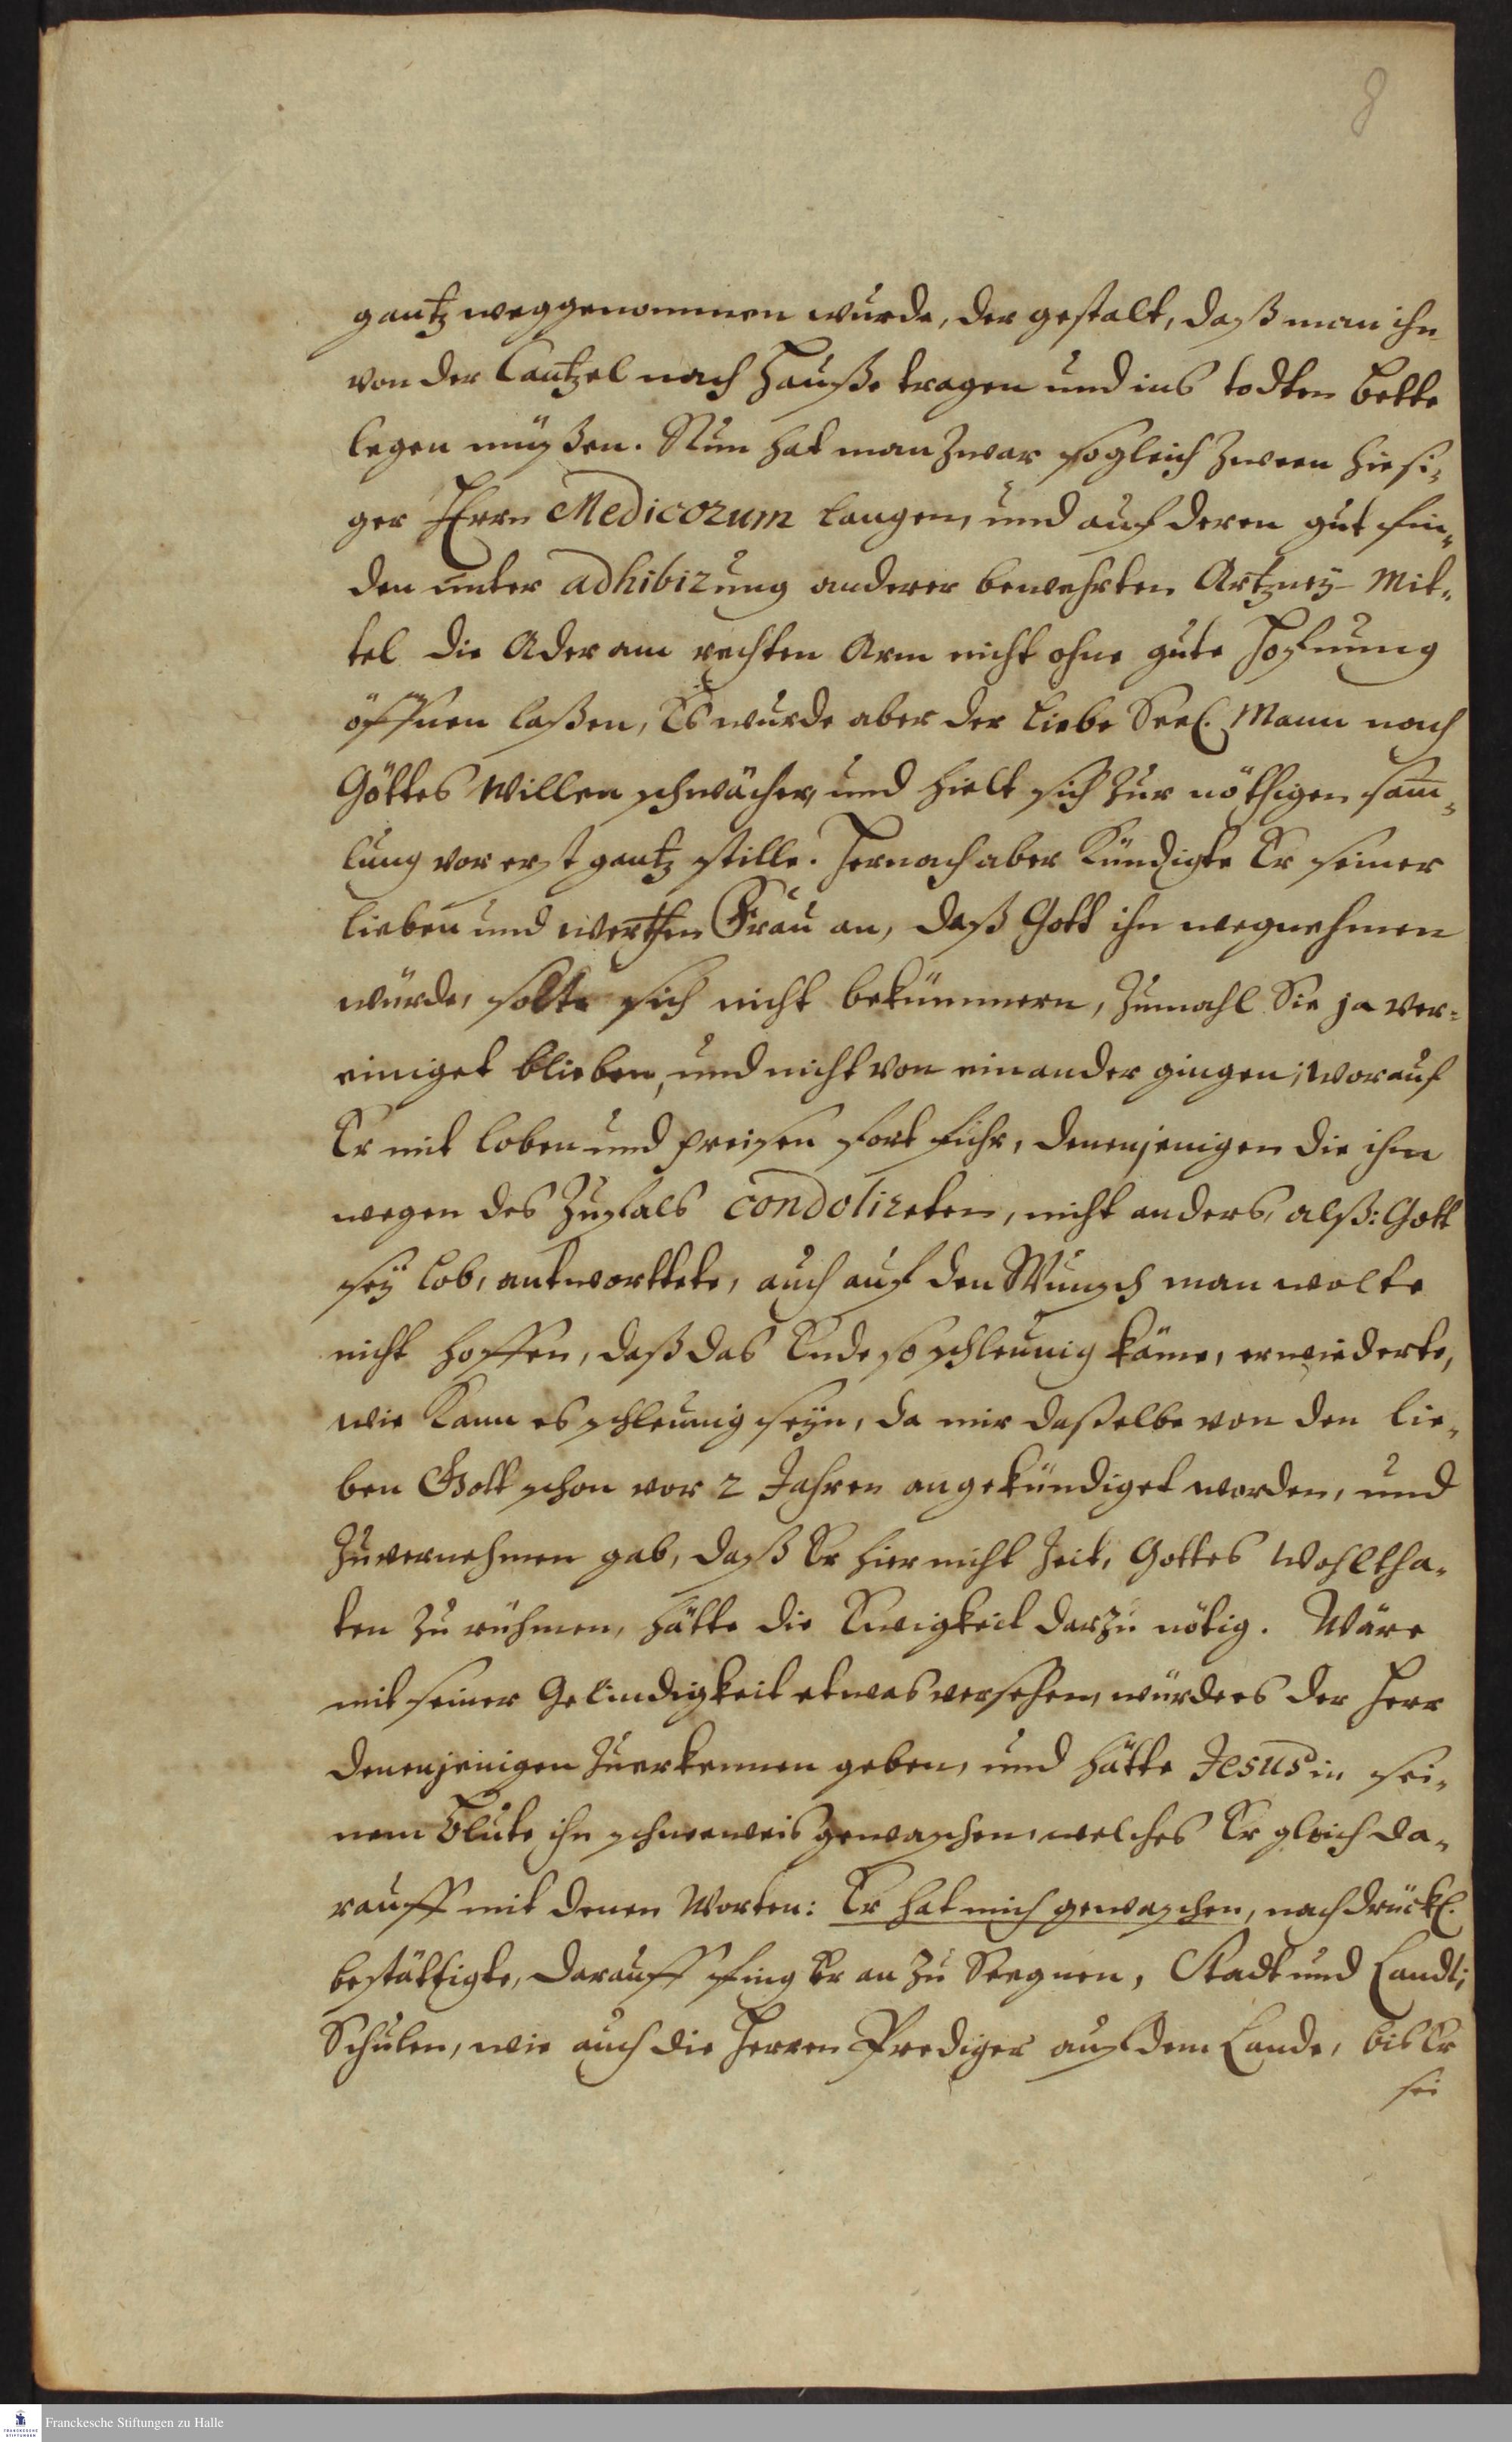 8
gantz weggenommen wurde, der gestalt, daß man ihn
von der Cantzel nach Hauße tragen und ins todten bette
legen müßen. Nun hat man zwar sogleich zween hiesi-
ger Herrn Medicorum langen, und auf deren gut fin-
den unter adhibirung anderer bewehrten Artzney-Mit-
tel die Ader am rechten Arm nicht ohne gute Hofnung
öffnen laßen, Es wurde aber der liebe Seel. Mann nach
Gottes Willen schwächer, und hielt sich zur nöthigen sam̄-
lung vor erst gantz stille. Hernach aber Kündigte Er seiner
lieben und werthen Frau an, daß Gott ihn wegnehmen
würde, solte sich nicht bekümmern, zumahl Sie ja ver-
einiget blieben, und nicht von einander gingen; worauf
Er mit loben und preisen fort fuhr, denenjenigen die ihm
wegen des Zufals condolireten, nicht anders, alß: Gott
sey lob, antworttete, auch auf den Wunsch man wolte
nicht hoffen, daß das Ende so schleunig käme, erwiederte,
wie Kann es schleunig seyn, da mir daßelbe von den lie-
ben Gott schon vor 2 Jahren angekündiget worden, und
zuvernehmen gab, daß Er hier nicht Zeit, Gottes Wohltha-
ten zu rühmen, hätte die Ewigkeit darzu nötig. Wäre
mit seiner Gelindigkeit etwas versehen, würde es der Herr
denenjenigen zuerkennen geben, und hätte Jesus in sei-
nem Blute ihn schneeweis gewaschen, welches Er gleich da-
rauff mit denen Worten: Er hat mich gewaschen, nachdrückl.
bestättigte, darauff fing Er an zu Seegnen, Stadt und Land,
Schulen, wie auch die Herren Prediger auf dem Lande, bis Er
sei
Franckesche Stiftungen zu Halle